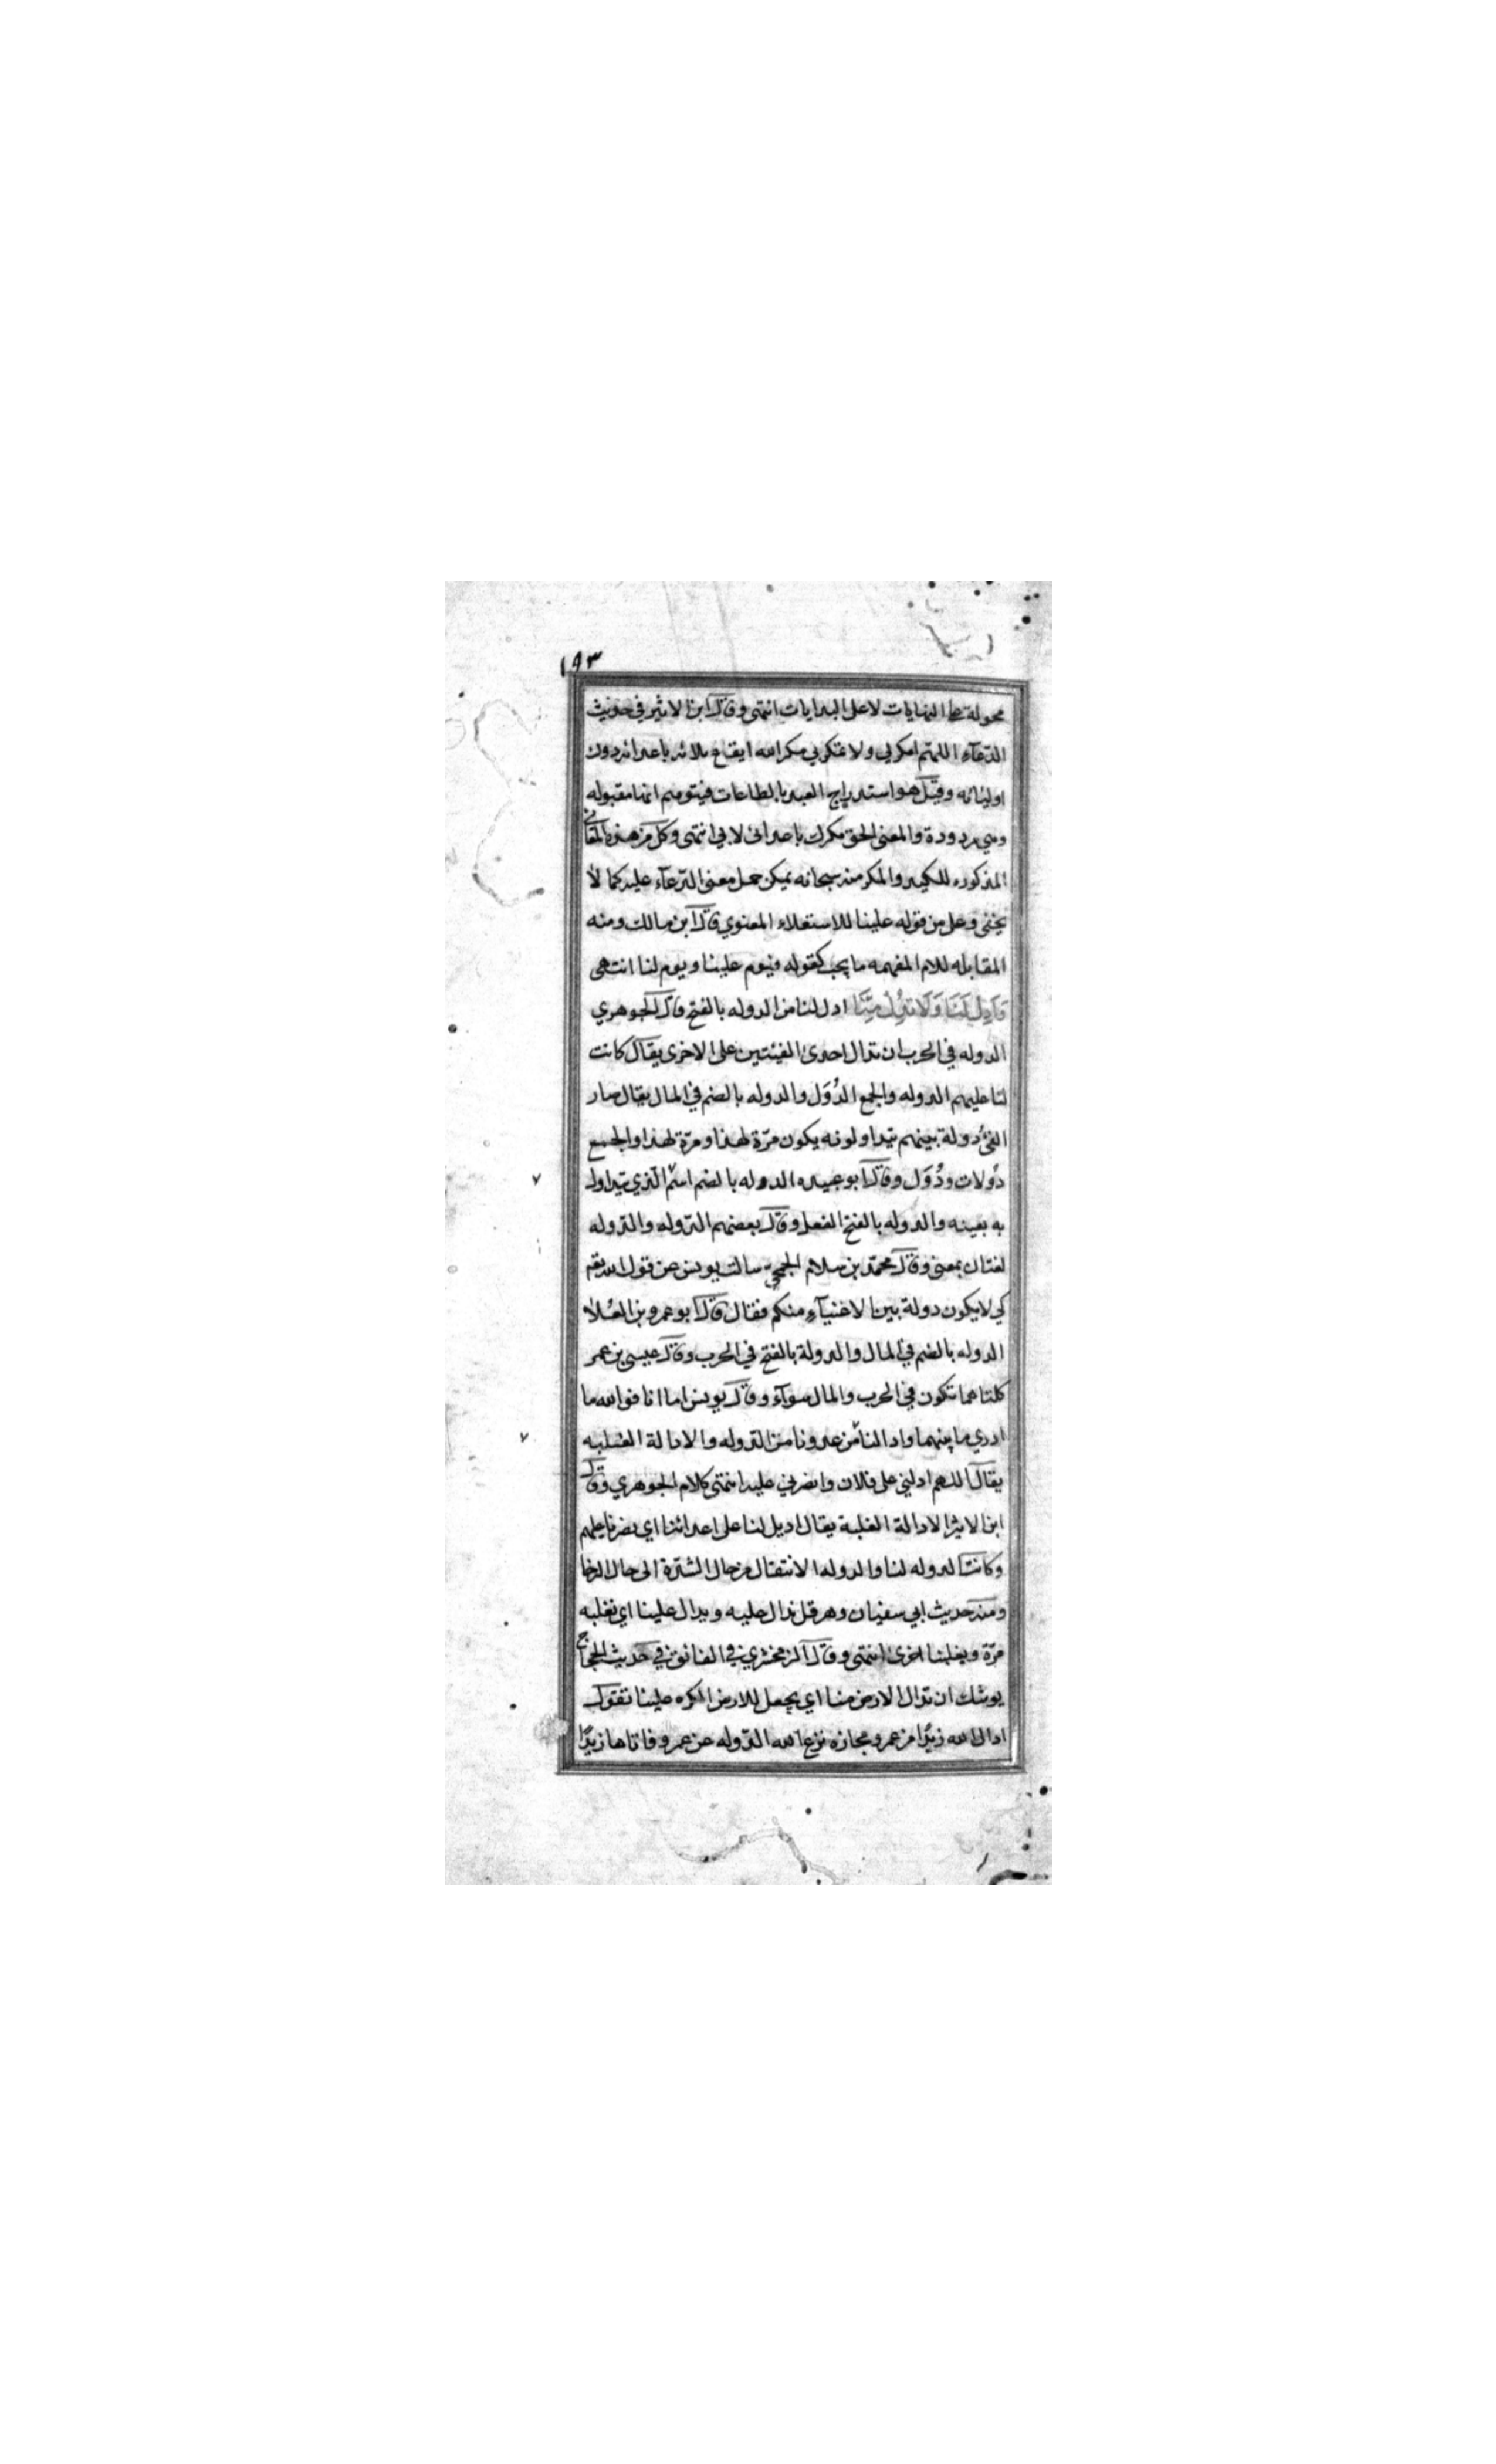 ١٩٣
محمولة على النهايات لا على البدايات انتهى وقال ابن الاثير في حديث
الدعآء اللهم امكر لي ولا تمكر بي مكر الله ايقاع بلائه باعدائه دون
اوليائه وقيل هو استدراج العبد بالطاعات فيتوهم انها مقبوله
وهي مردودة والمعنى الحق مكرك باعدائى لا بي انتهى وكل من هذه المعاني
المذكوره للكيد والمكر منه سبحانه يمكن حمل معنى الدعآء عليه كما لا
يخفى وعلى من قوله علينا للاستعلاء المعنوي قال ابن مالك ومنه
المقابله للام المفهمه ما يحب كقوله فيوم علينا ويوم لنا انتهى
وَأَدِلْ لَنَا وَلَا تُدِلْ مِنَّا ادل لنا من الدوله بالفتح قال الجوهري
الدوله في الحرب ان تدال احدى الفئتين على الاخرى يقال كانت
لنا عليهم الدوله والجمع الدُوَل والدوله بالضم في المال يقال صار
الفئ دولة بينهم يتداولونه يكون مرّة لهذا ومرّة لهذا والجمع
دُولات ودُوَل وقال ابو عبيده الدوله بالضم اسم الّذي يتداول
به بعينه والدوله بالفتح الفعل وقال بعضهم الدّوله والدّوله
لغتان بمعنى وقال محمّد بن سلام الجمحي سالت يونس عن قول الله تعم
كي لا يكون دولة بين الاغنيآءِ منكم فقال قال ابو عمرو بن العُلاء
الدوله بالضم في المال والدولة بالفتح في الحرب وقال عيسى بن عمر
كلتاهما تكون في الحرب والمال سوآء وقال يونس اما انا فوالله ما
ادري ما بينهما وادالنا من عدونا من الدّوله والادالة الغلبه
يقال اللهم ادلني على فلان وانصرني عليه انتهى كلام الجوهري وقال
ابن الاثير الادالة الغلبة يقال اديل لنا على اعدائنا اي نصرنا عليهم
وكانت الدوله لنا والدوله الانتقال من حال الشدّة الى حال الرخا
ومنه حديث ابي سفيان وهرقل ندال عليه ويدال علينا اي نغلبه
مرّة ويغلبنا اخرى انتهى وقال الزمخشري في الفائق في حديث الحجاج
يوشك ان تدال الارض منا اي يجعل للارض الكره علينا تقول
ادال الله زيدًا من عمرو مجازه نزع الله الدّوله عن عمرو فاتاها زيدًا